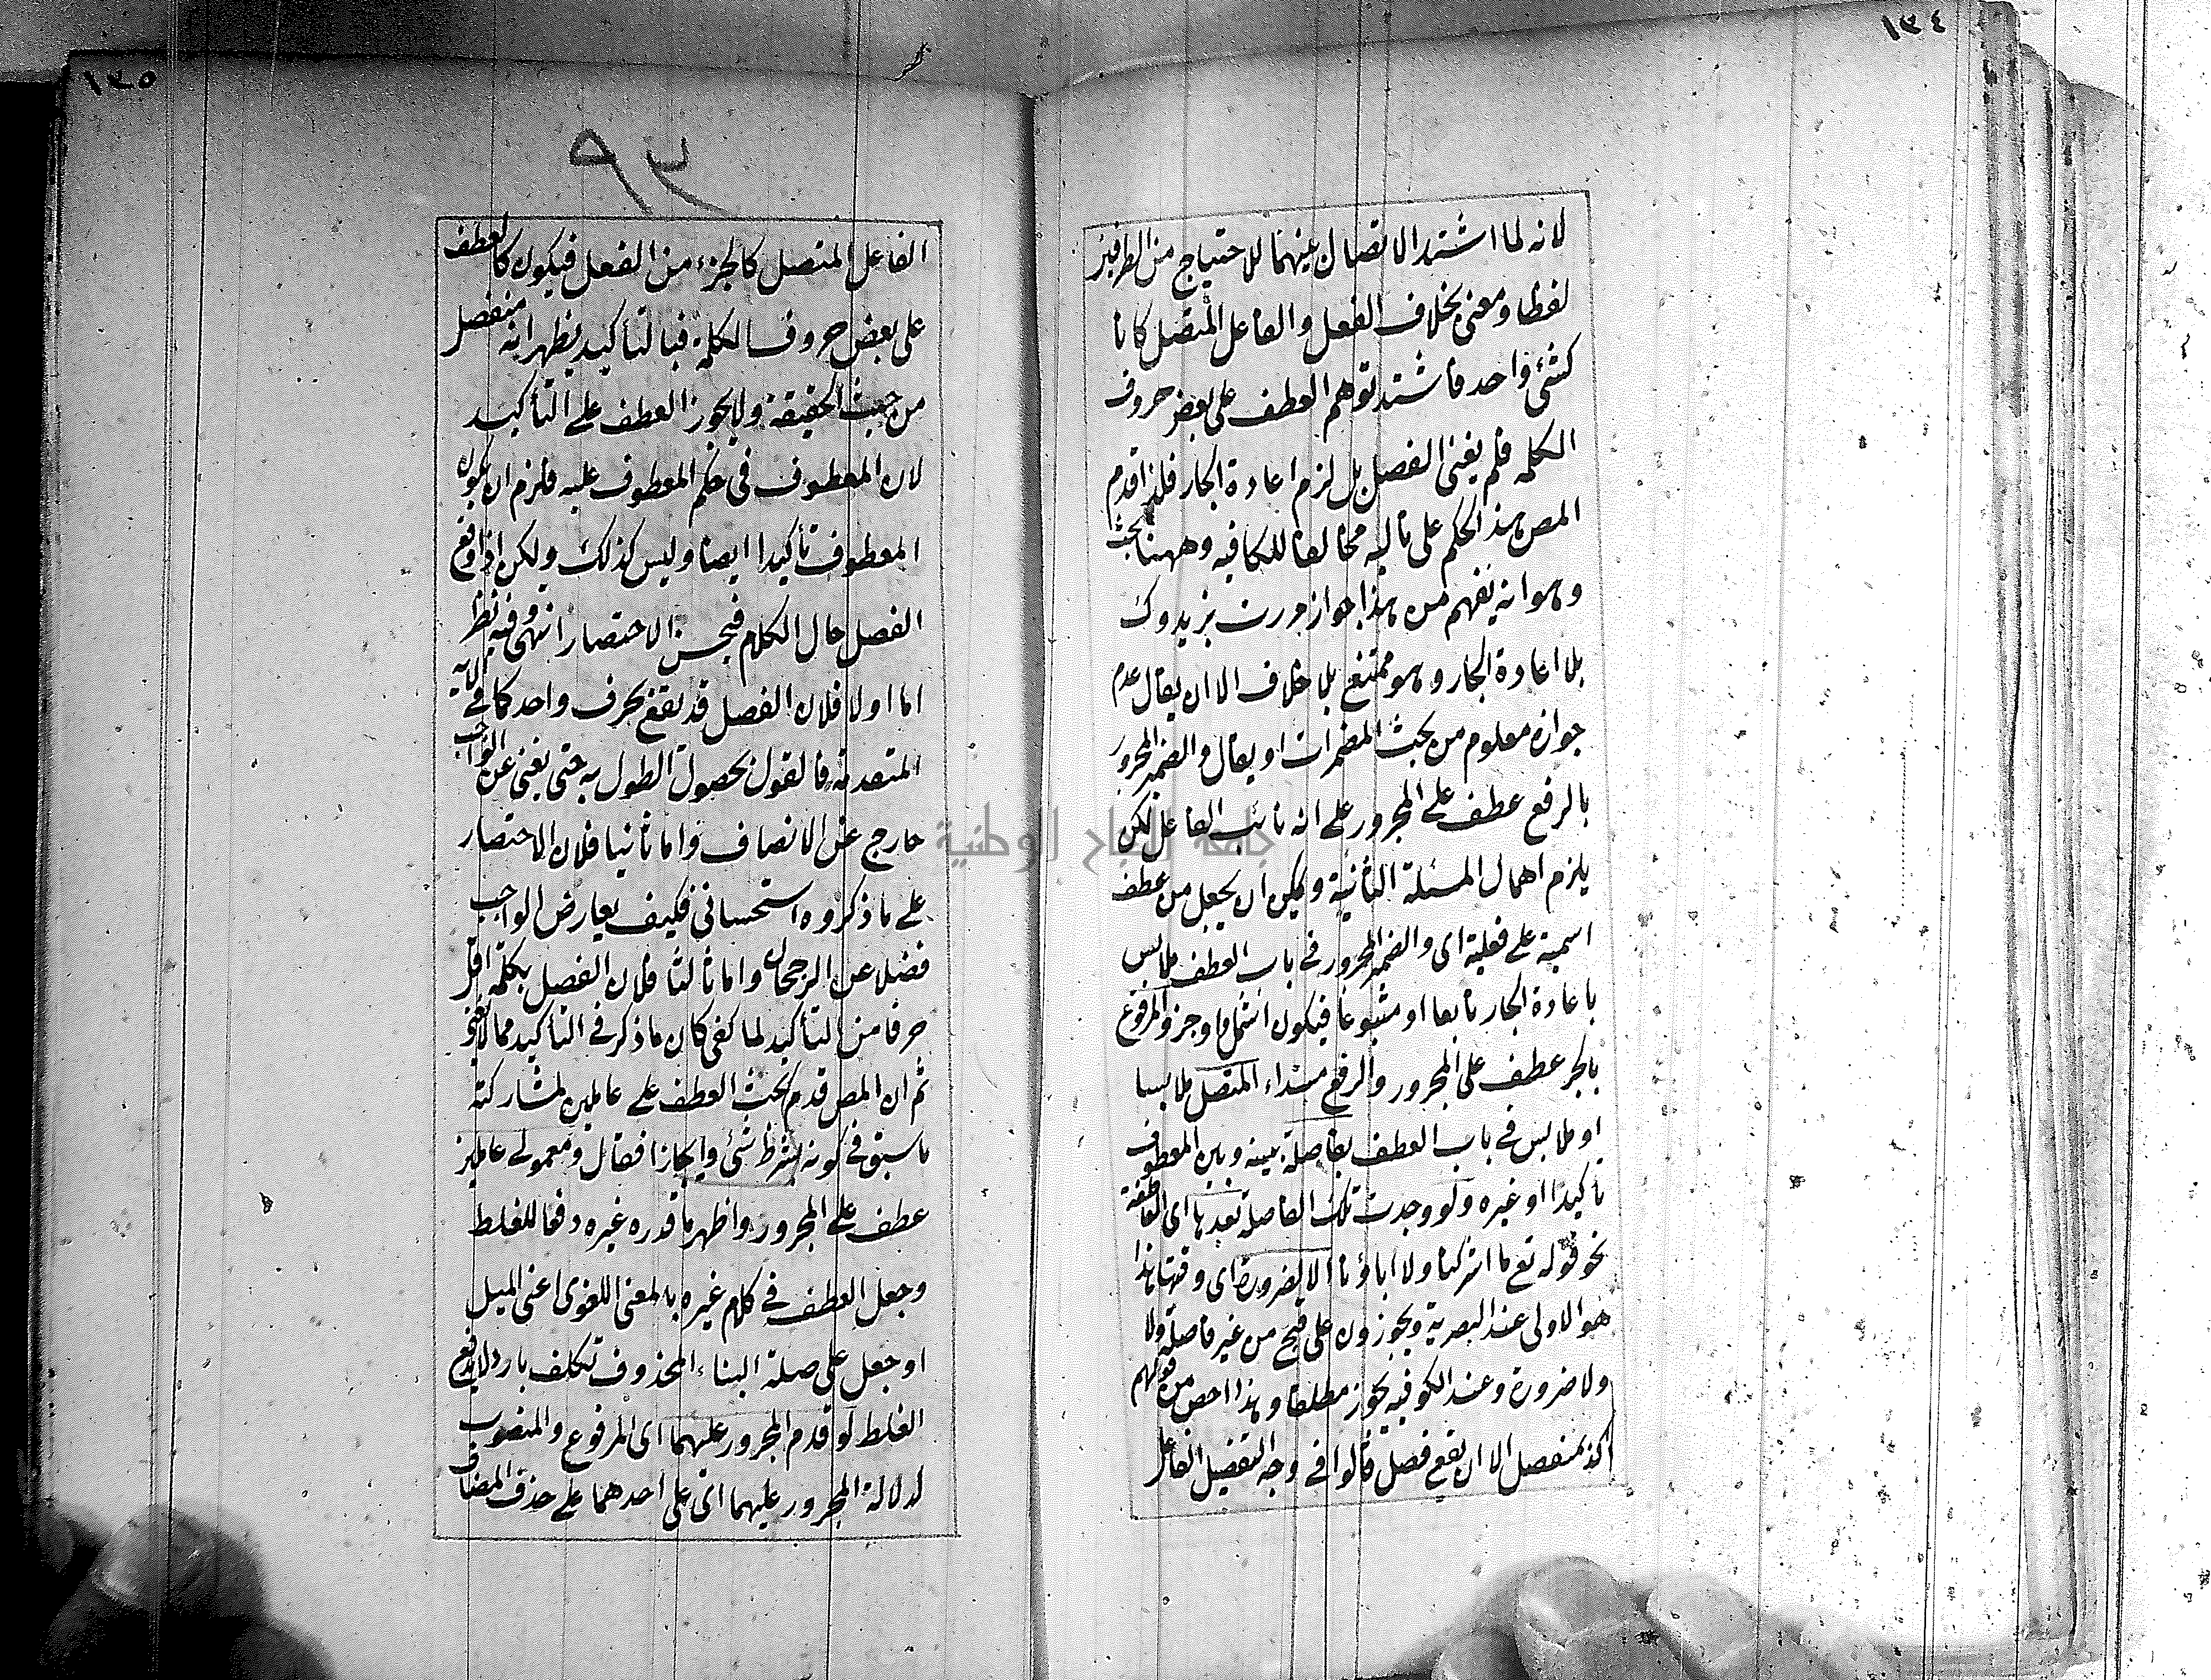 ١٣٤
لانه لما اشتد الاتصال بينهما للاحتياج من الطرفين
لفظا ومعنى بخلاف الفعل والفاعل المتصل كانا
كشئ واحد فاشتد توهم العطف على بعض حروف
الكلمة فلم يغن الفصل بل لزم اعادة الجار فلذا قدم
المص هذا الحكم على تاليه مخالفا للكافيه وههنا بحث
وهو انه يفهم من هذا جواز مررت بزيد وك
بلا اعادة الجار وهو ممتنع بلا خلاف الا ان يقال عدم
جوازه معلوم من بحث المضمرات او يقال والضمير المجرور
بالرفع عطف على المجرور على انه نائب الفاعل لكن
يلزم اهمال المسئلة الثانية ويمكن ان يجعل من عطف
اسمية على فعلية اى والضمير المجرور فى باب العطف ملابس
باعادة الجار تابعا او متبوعا فيكون اشمل واوجز والمرفوع
بالجر عطف على المجرور والرفع مبتداء المتصل ملابسا
او ملابس فى باب العطف بفاصلة بينه وبين المعطوف
تأكيدا او غيره ولو وجدت تلك الفاصلة بعدها اى العاطفة
نحو قوله تع ما اشركنا ولا اباؤنا الا لضرورة اى وقتها هذا
هو الاولى عند البصرية ويجوزون على قبح من غير فاصلة ولا
ولا ضرورة وعند الكوفيه يجوز مطلقا وهذا احصر من قولهم
اكد بمنفصل الا ان يقع فصل قالوا فى وجه التفصيل الفاعل
١٣٥
٩٣
الفاعل المتصل كالجزء من الفعل فيكون كالعطف
على بعض حروف الكلمة فبالتأكيد يظهر انه منفصل
من حيث الحقيقة ولا يجوز العطف على التأكيد
لان المعطوف فى حكم المعطوف عليه فلزم ان يكون
المعطوف تأكيدا ايضا وليس كذلك ولكن اذا وقع
الفصل طال الكلام فيحسن الاختصار انتهى وفيه نظر
اما اولا فلان الفصل قد يقع بحرف واحد كما فى الاية
المتقدمة فالقول بحصول الطول به حتى يغنى عن الواجب
خارج عن الانصاف واما ثانيا فلان الاختصار
على ما ذكروه استحسانى فكيف يعارض الواجب
فضلا عن الرجحان واما ثالثا فلان الفصل بكلمة اقل
حرفا من التأكيد لما كفى كان ما ذكر فى التأكيد مما لا يغنى
ثم ان المص قدم بحث العطف على عاملين لمشاركته
ما سبق فى كونه بشرط شئ وايجازا فقال ومعمولى عاملين
عطف على المجرور واظهر ما قدره غيره دفعا للغلط
وجعل العطف فى كلام غيره بالمعنى اللغوى اعنى الميل
او جعل على صلة البناء المحذوف تكلف بارد لا يدفع
الغلط لو قدم المجرور عليهما اى المرفوع والمنصوب
لدلالة المجرور عليهما اى على احدهما على حذف المضاف
جامعة النجاح الوطنية